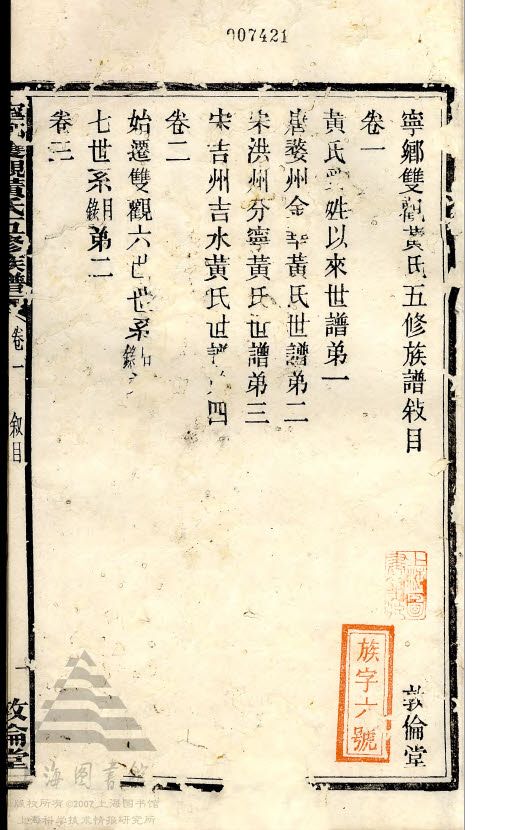 007421
寧鄉雙觀黃氏五修族譜敘目
敦倫堂
卷一
黃氏受姓以來世譜弟一
唐婺州金華黃氏世譜弟二
宋洪州分寧黃氏世譜弟三
宋吉州吉水黃氏世譜 四
卷二
始遷雙觀六世世系錄
七世系錄目弟二
卷三
寧鄉雙觀黃氏五修族譜 卷一 敘目 敦倫堂
族字六號
上海圖書館
版权所有 ©2007 上海图书馆
上海科学技术情报研究所